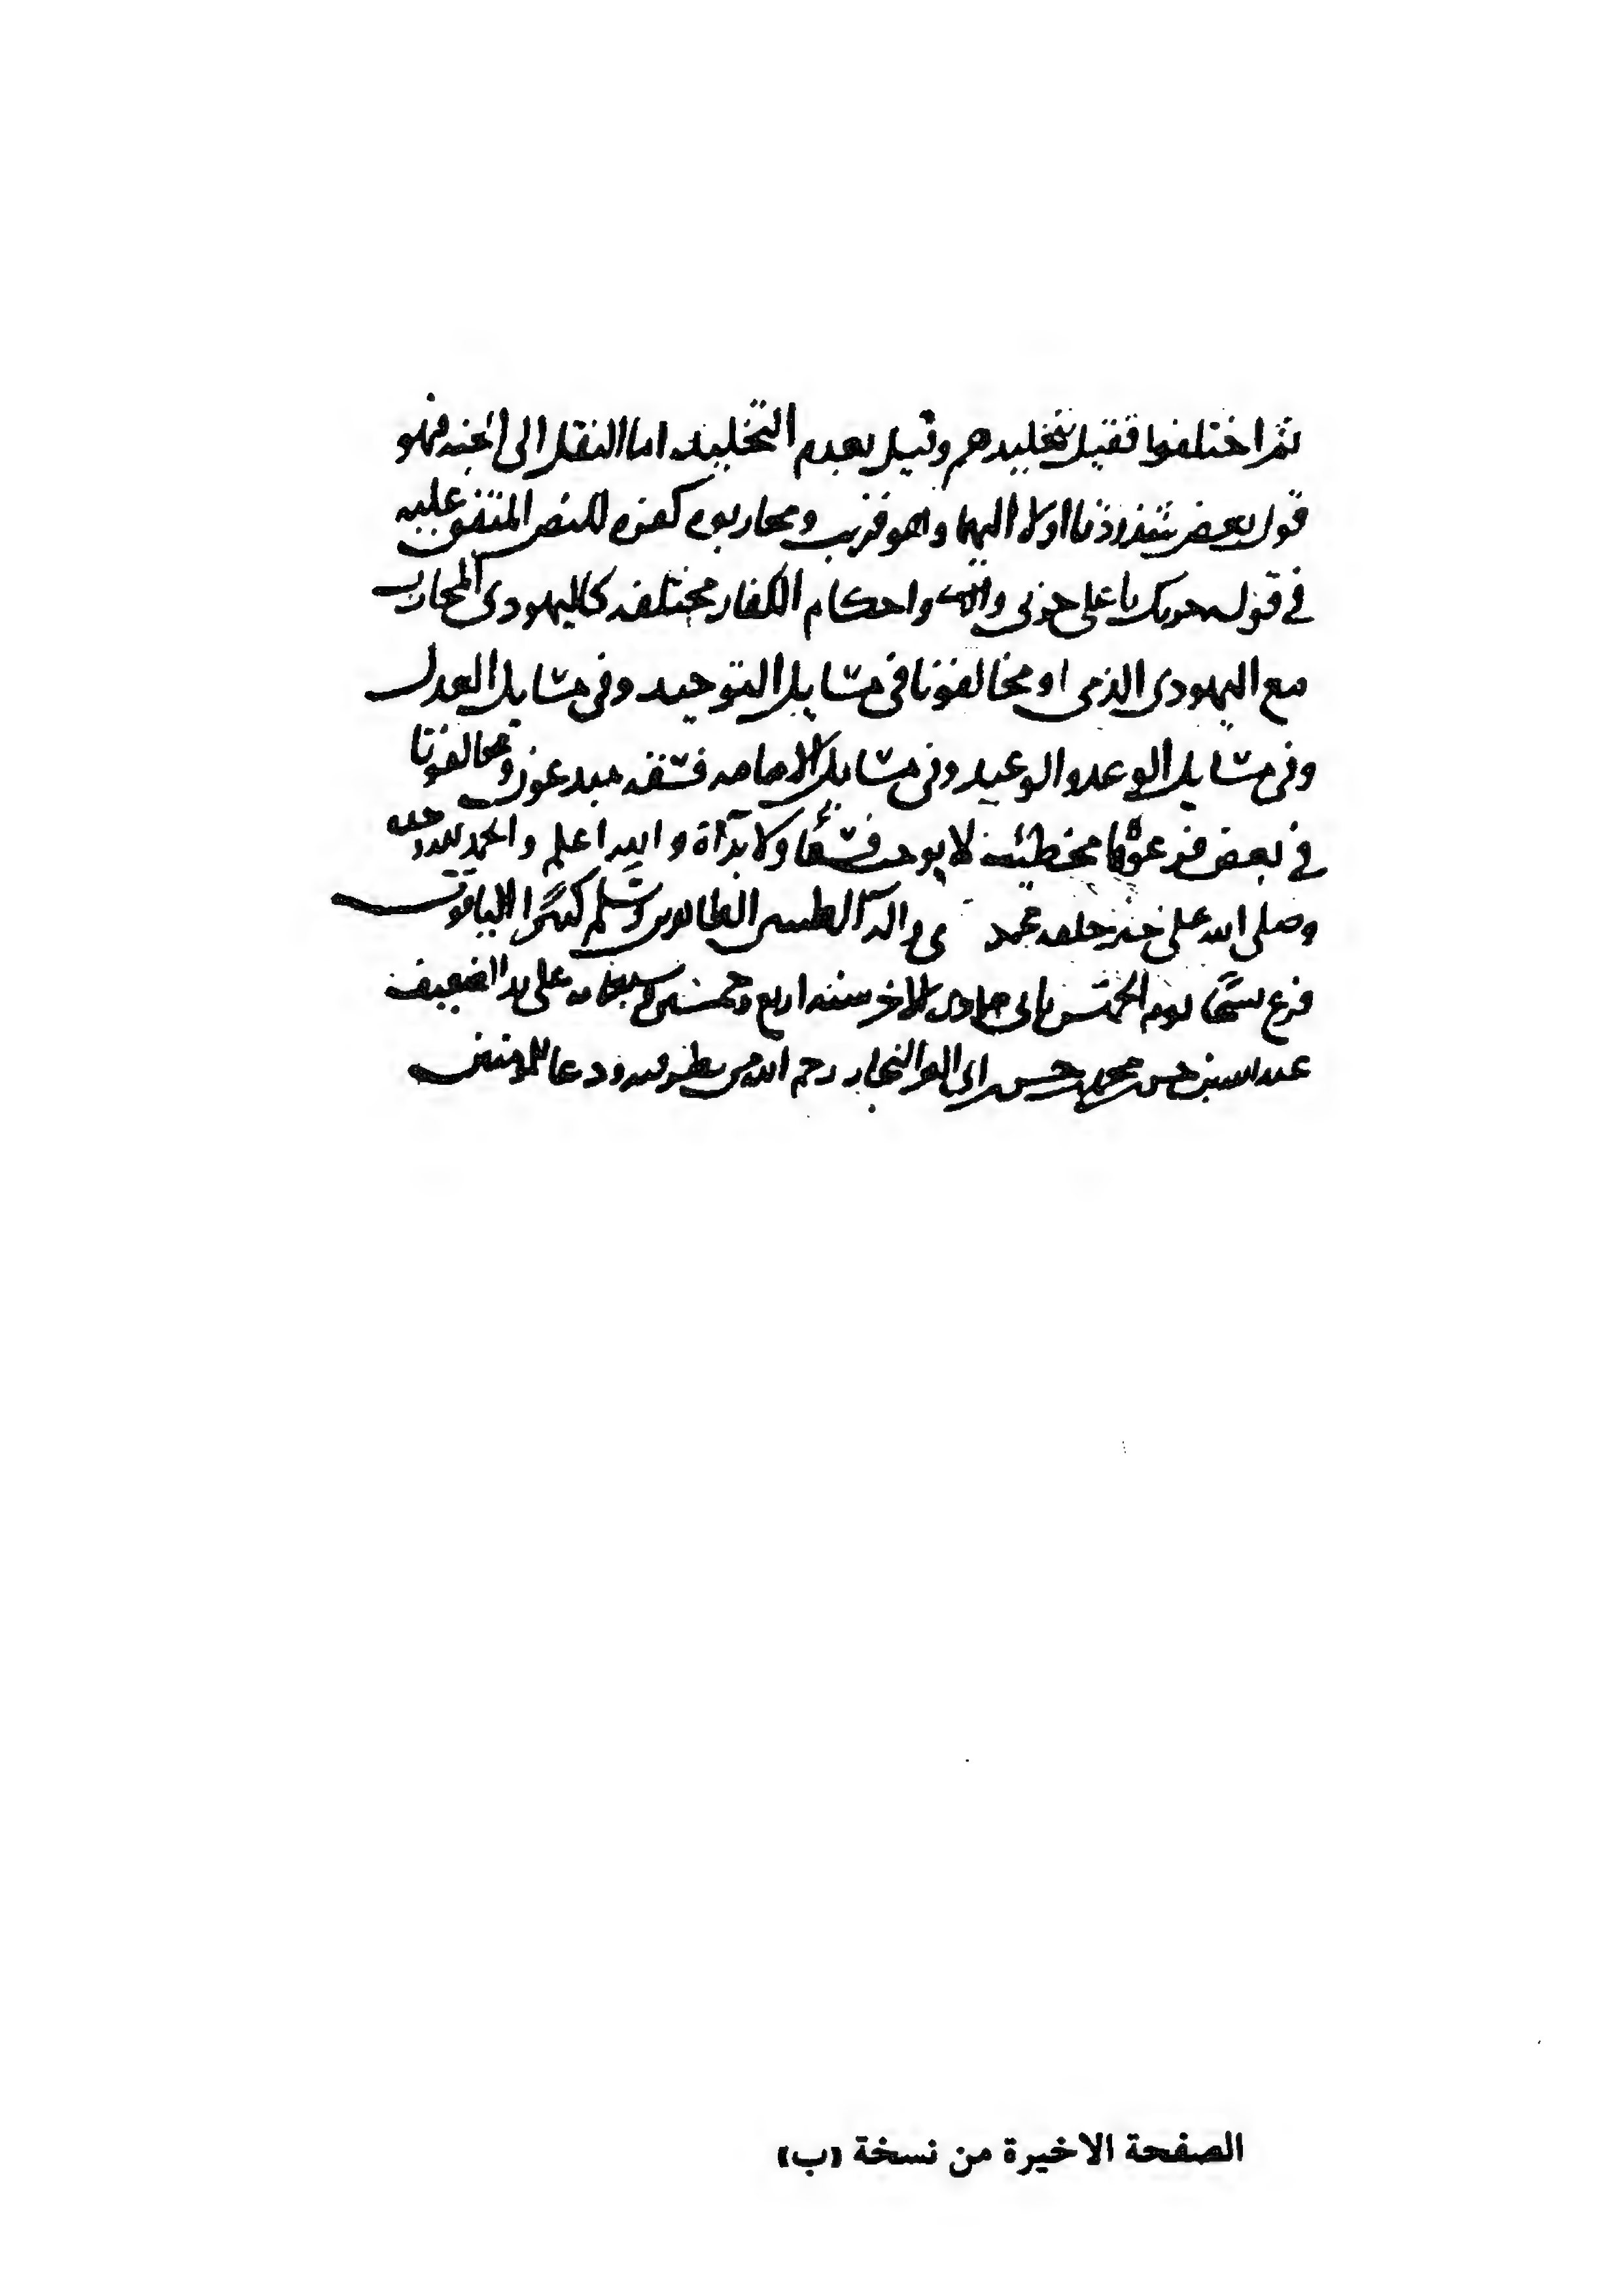 ثم اختلفوا فقيل بتخليدهم وقيل بعدم التخليد اما النقل الى الجنه فهو
قول بعض شذوذنا اولاد اليها وهو قريب ومحاربوه كفره للنص المتفق عليه
في قوله حربك يا على حربى واحكام الكفار مختلفه كاليهودى المحارب
مع اليهودى الذمى او مخالفونا فى مسايل التوحيد وفى مسايل العدل
وفى مسايل الوعد والوعيد وفى مسايل الامامه فسقه مبدعون ومخالفونا
في بعض فروعها مخطئه لا يوجب فسقا ولا برآة والله اعلم والحمد لله وحده
وصلى الله على خير خلقه محمد واله الطيبين الطاهرين وسلم كثيرا الياقوت
فرغ يوم الخميس جمادى الاخر سنه اربع وخمسين على يد الضعيف
عبد الله بن حسن بن محمد بن حسن النجار رحم الله من نظر فيه ودعا للمومنين
الصفحة الاخيرة من نسخة (ب)